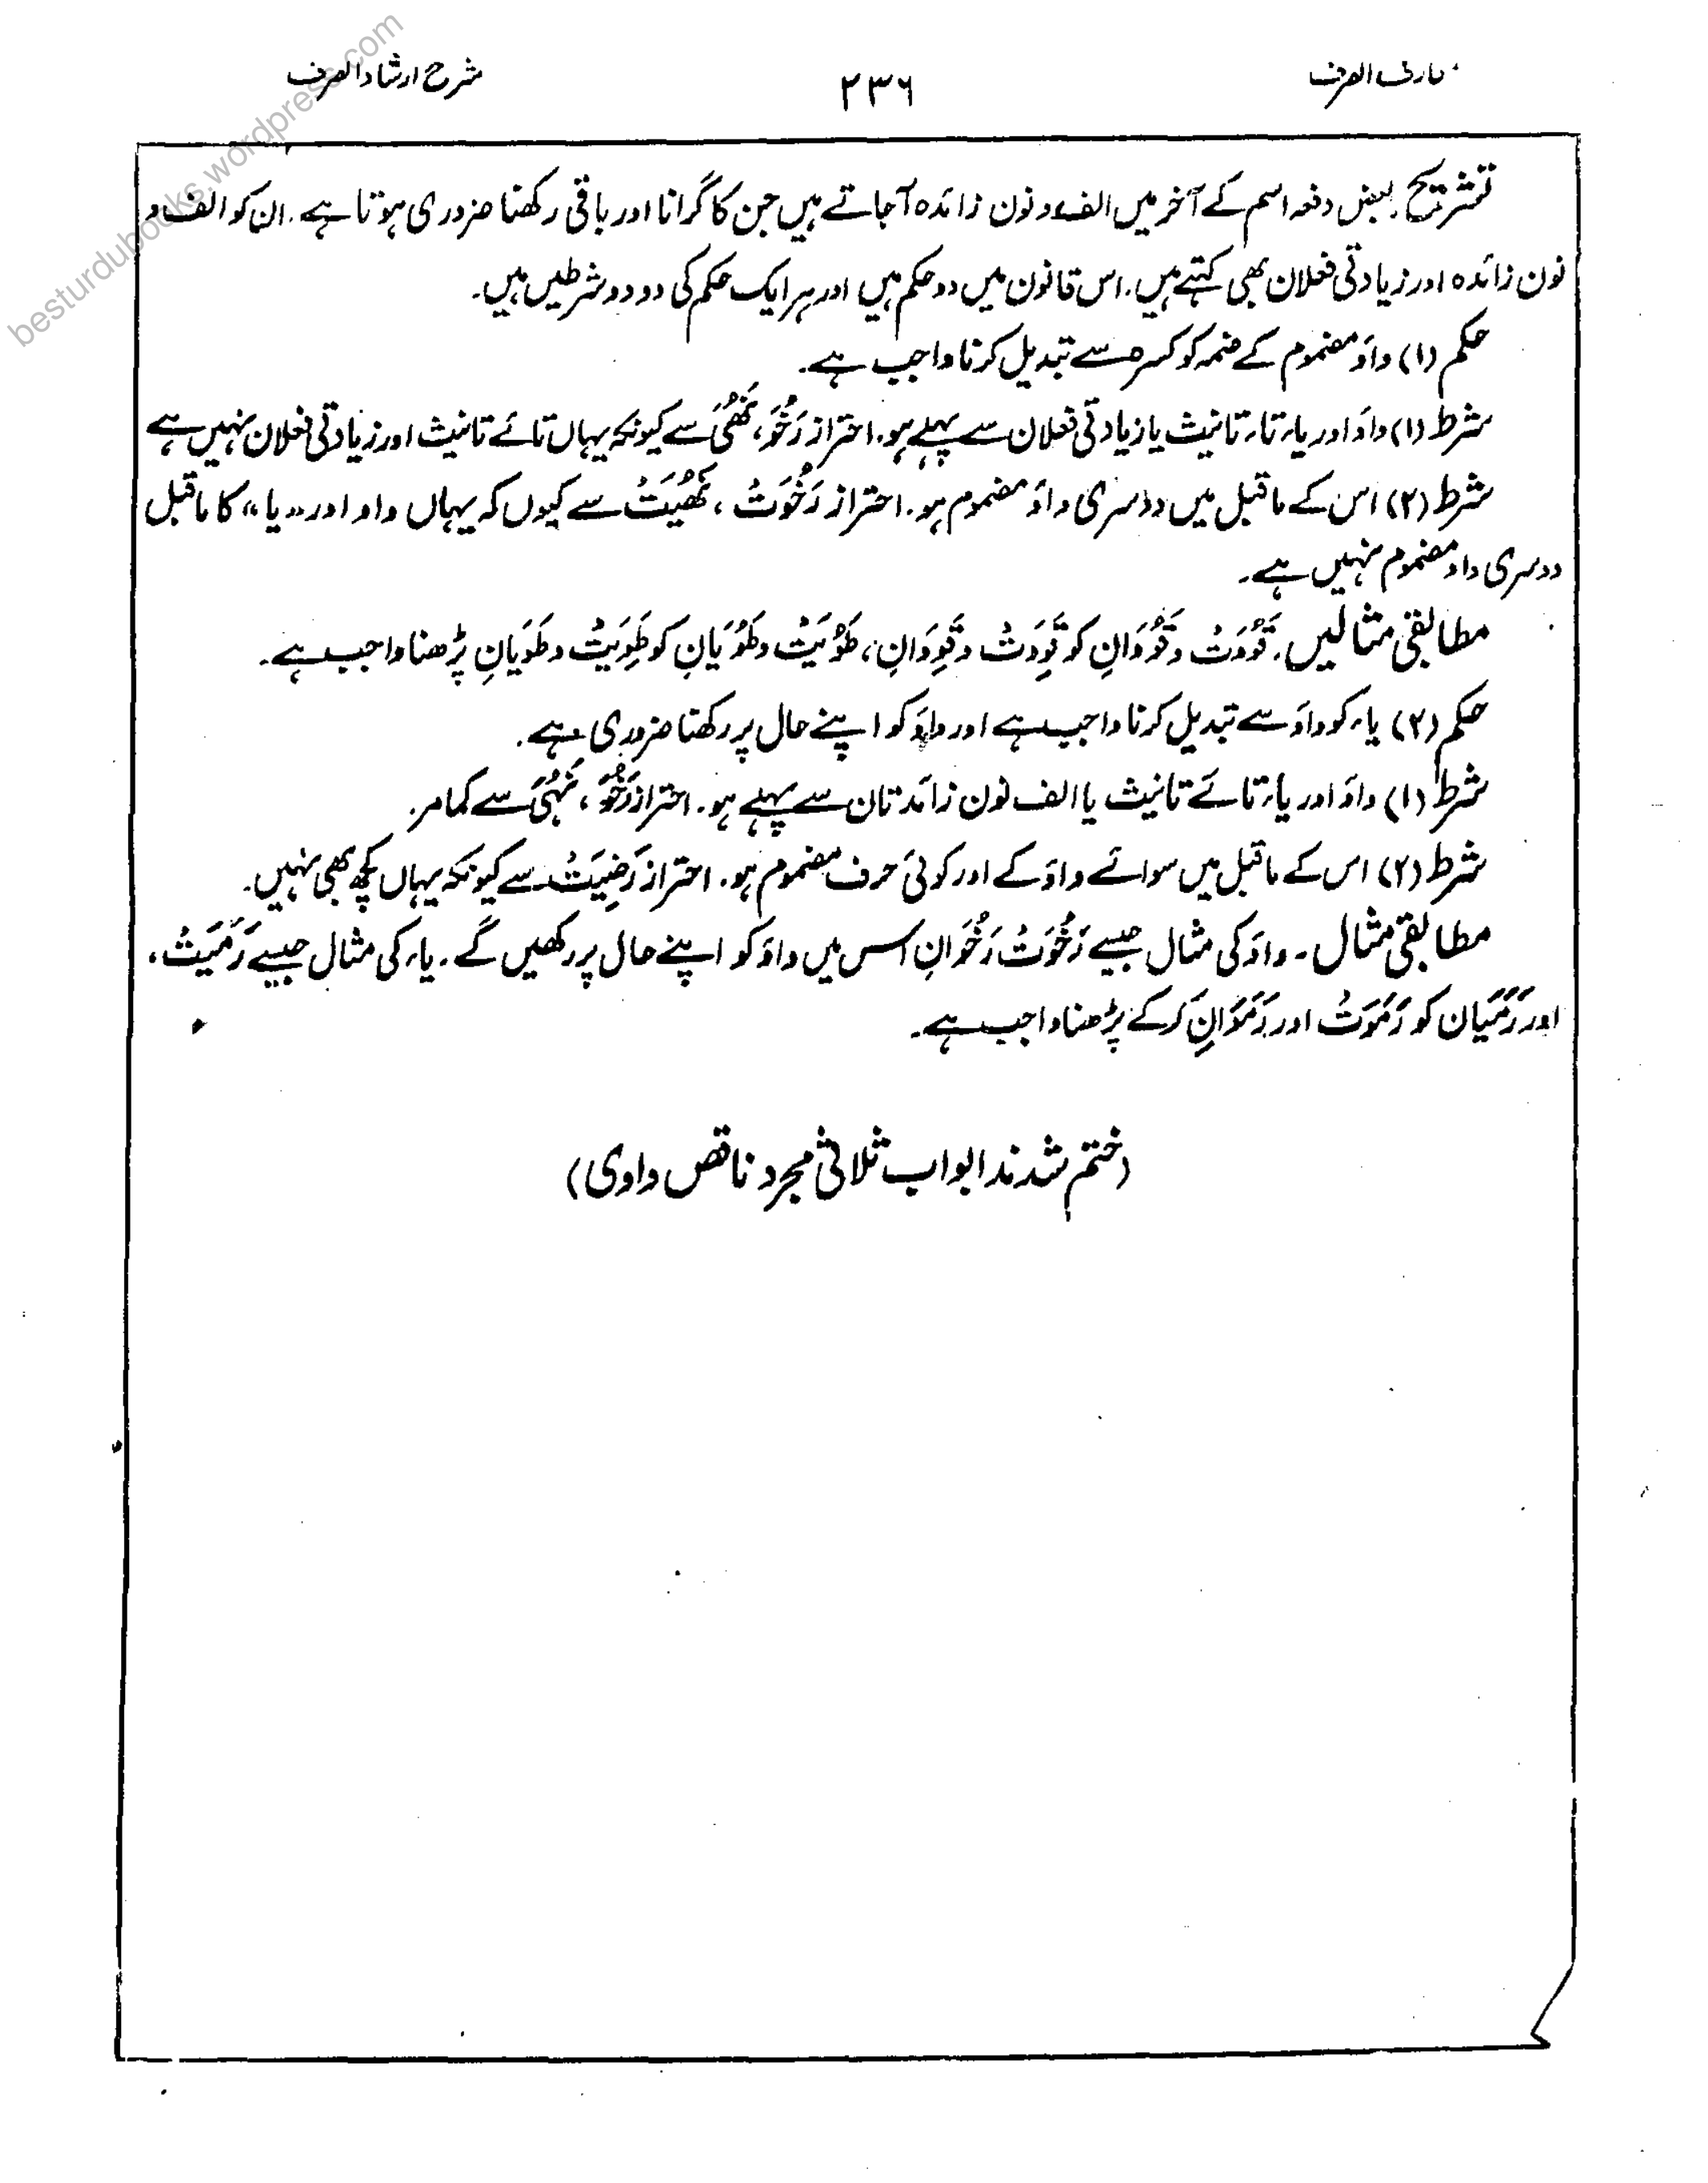 مارف الصرف
۲۳۶
شرح ارشاد الصرف
تشریح۔ بعض دفعہ اسم کے آخر میں الف و نون زائدہ آجاتے ہیں جن کا گرانا اور باقی رکھنا ضروری ہوتا ہے۔ ان کو الف و
نون زائدہ اور زیادتی فعلان بھی کہتے ہیں۔ اس قانون میں دو حکم ہیں اور ہر ایک حکم کی دو دو شرطیں ہیں۔
حکم (۱) واؤ مضموم کے ضمہ کو کسرہ سے تبدیل کرنا واجب ہے۔
شرط (۱) واؤ اور یاء تاء تانیث یا زیادتی فعلان سے پہلے ہو۔ احتراز رَخُوَ، نَھُیَ سے کیونکہ یہاں تائے تانیث اور زیادتی فعلان نہیں ہے
شرط (۲) اس کے ماقبل میں دوسری واؤ مضموم ہو۔ احتراز رَخُوَتْ ، نَھُیَتْ سے کیوں کہ یہاں واو اور "یا" کا ماقبل
دوسری واو مضموم نہیں ہے۔
مطابقی مثالیں۔ قَوُوَتْ وَقَوُوَانِ کو قَوِوَتْ وَقَوِوَانِ، طَوُیَتْ وطَوُیَانِ کو طَوِیَتْ وطَوِیَانِ پڑھنا واجب ہے۔
حکم (۲) یاء کو واؤ سے تبدیل کرنا واجب ہے اور واؤ کو اپنے حال پر رکھنا ضروری ہے۔
شرط (۱) واؤ اور یاء تائے تانیث یا الف نون زائدتان سے پہلے ہو۔ احتراز رَخُوَ ، نَہُیَ سے کمامر۔
شرط (۲) اس کے ماقبل میں سوائے واؤ کے اور کوئی حرف مضموم ہو۔ احتراز رَضِیَتْ سے کیونکہ یہاں کچھ بھی نہیں۔
مطابقی مثال ۔ واؤ کی مثال جیسے رَخُوَتْ رَخُوَانِ اس میں واؤ کو اپنے حال پر رکھیں گے ۔ یاء کی مثال جیسے رَمُیَتْ ،
اور رَمُیَان کو رَمُوَتْ اور رَمُوَانِ کرکے پڑھنا واجب ہے۔
(ختم شدند ابواب ثلاثی مجرد ناقص واوی)
besturdubooks.wordpress.com